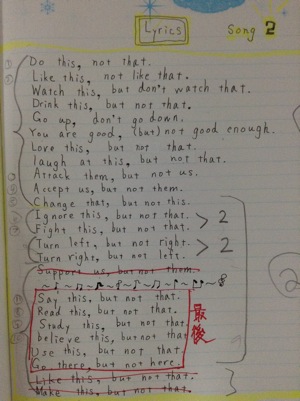 Lyrics
Song 2
Do this, not that.
Like this, not like that.
Watch this, but don't watch that.
Drink this, but not that.
Go up, don't go down.
You are good, (but) not good enough.
Love this, but not that.
laugh at this, but not that.
Attack them, but not us.
Accept us, but not them.
Change that, but not this.
Ignore this, but not that. > 2
Fight this, but not that.
Turn left, but not right. > 2
Turn right, but not left.
Support us, but not them.
Say this, but not that.
Read this, but not that.
Study this, but not that
believe this, but not that
Use this, but not that.
Go there, but not here.
最後
Like this, but not that.
Make this, but not that.
2